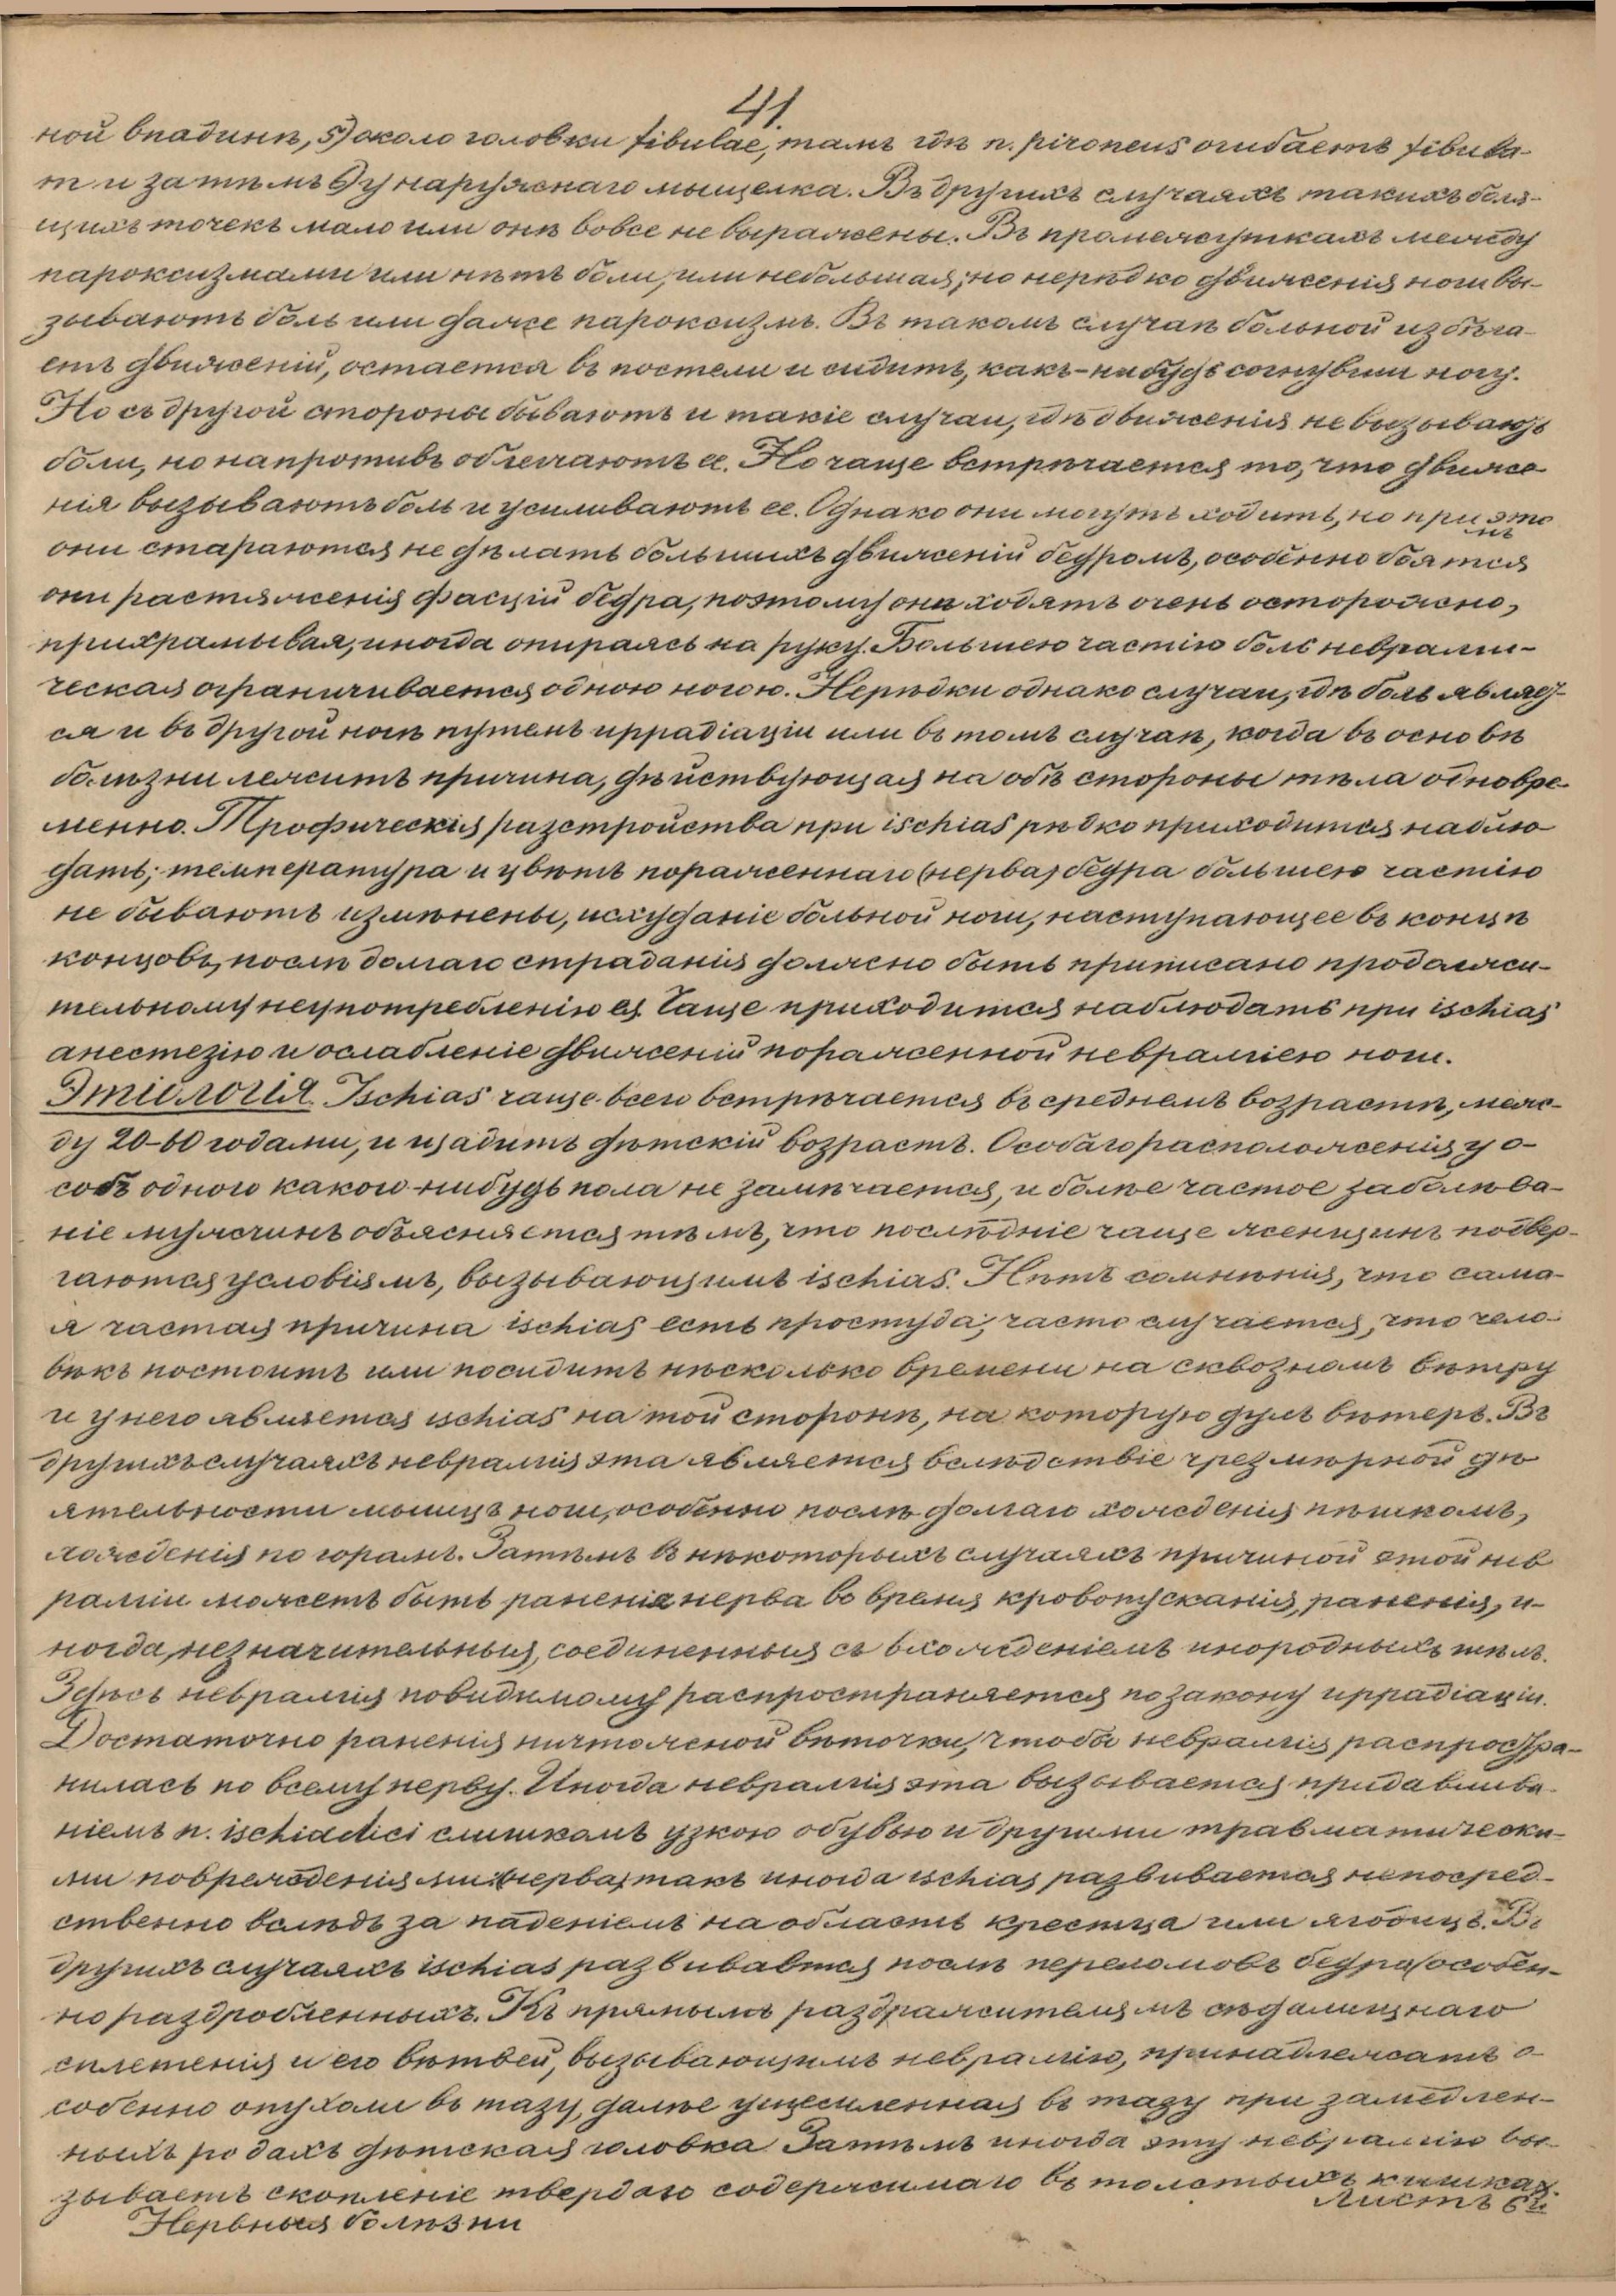 41.
ной впадинѣ, 5) около головки fibulae, тамъ гдѣ n. pironeus огибаетъ fibula-
m и затѣмъ 6) у наружнаго мыщелка. Въ другихъ случаяхъ такихъ боля-
щихъ точекъ мало или онѣ вовсе не выражены. Въ промежуткахъ между
пароксизмами или нѣтъ боли, или небольшая, но нерѣдко движенія ноги вы-
зываютъ боль или даже пароксизмъ. Въ такомъ случаѣ больной избѣга-
етъ движеній, остается въ постели и сидитъ, какъ-нибудь согнувши ногу.
Но съ другой стороны бываютъ и такіе случаи, гдѣ движенія не вызываютъ
боли, но напротивъ облегчаютъ ее. Но чаще встрѣчается то, что движе-
нія вызываютъ боль и усиливаютъ ее. Однако они могутъ ходить, но при это
мъ
они стараются не дѣлать большихъ движеній бедромъ, особенно боятся
они растяженія фасцій бедра, поэтому они ходятъ очень осторожно,
прихрамывая, иногда опираясь на руку. Большею частію боль невралги-
ческая ограничивается одною ногою. Нерѣдки однако случаи, гдѣ боль являет-
ся и въ другой ногѣ путемъ иррадіаціи или въ томъ случаѣ, когда въ основѣ
болѣзни лежитъ причина, дѣйствующая на обѣ стороны тѣла одновре-
менно. Трофическія разстройства при ischias рѣдко приходится наблю-
дать; температура и цвѣтъ пораженнаго (нерва) бедра большею частію
не бываютъ измѣнены, исхуданіе больной ноги, наступающее въ концѣ
концовъ, послѣ долгаго страданія должно быть приписано продолжи-
тельному неупотребленію ея. Чаще приходится наблюдать при ischias
анестезію и ослабленіе движеній пораженной невралгіею ноги.
Этіологія. Ischias чаще всего встрѣчается въ среднемъ возрастѣ, меж-
ду 20-60 годами, и щадитъ дѣтскій возрастъ. Особаго расположенія у о-
собъ одного какого-нибудь пола не замѣчается, и болѣе частое заболѣва-
ніе мужчинъ объясняется тѣмъ, что послѣдніе чаще женщинъ подвер-
гаются условіямъ, вызывающимъ ischias. Нѣтъ сомнѣнія, что сама-
я частая причина ischias есть простуда; часто случается, что чело-
вѣкъ постоитъ или посидитъ нѣсколько времени на сквозномъ вѣтру
и у него является ischias на той сторонѣ, на которую дулъ вѣтеръ. Въ
другихъ случаяхъ невралгія эта является вслѣдствіе чрезмѣрной дѣ-
ятельности мышцъ ноги, особенно послѣ долгаго хожденія пѣшкомъ,
хожденія по горамъ. Затѣмъ въ нѣкоторыхъ случаяхъ причиной этой нев
ралгіи можетъ быть раненіе нерва во время кровопусканія, раненія, и-
ногда, незначительныя, соединенныя съ вхожденіемъ инородныхъ тѣлъ.
Здѣсь невралгія повидимому распространяется по закону иррадіаціи.
Достаточно раненія ничтожной вѣточки, чтобы невралгія распростра-
нилась по всему нерву. Иногда невралгія эта вызывается придавлива-
ніемъ n. ischiadici слишкомъ узкою обувью и другими травматически-
ми поврежденіями (нерва) такъ иногда ischias развивается непосред-
ственно вслѣдъ за паденіемъ на область крестца или ягодицъ. Въ
другихъ случаяхъ ischias развивается послѣ переломовъ бедра (особен-
но раздробленныхъ. Къ прямымъ раздражителямъ сѣдалищнаго
сплетенія и его вѣтвей, вызывающимъ невралгію, принадлежатъ о-
собенно опухоли въ тазу, далѣе ущемленная въ тазу при замедлен-
ныхъ родахъ дѣтская головка. Затѣмъ иногда эту невралгію вы-
зываетъ скопленіе твердаго содержимаго въ толстыхъ кишкахъ.
Нервныя болѣзни
Листъ 6й